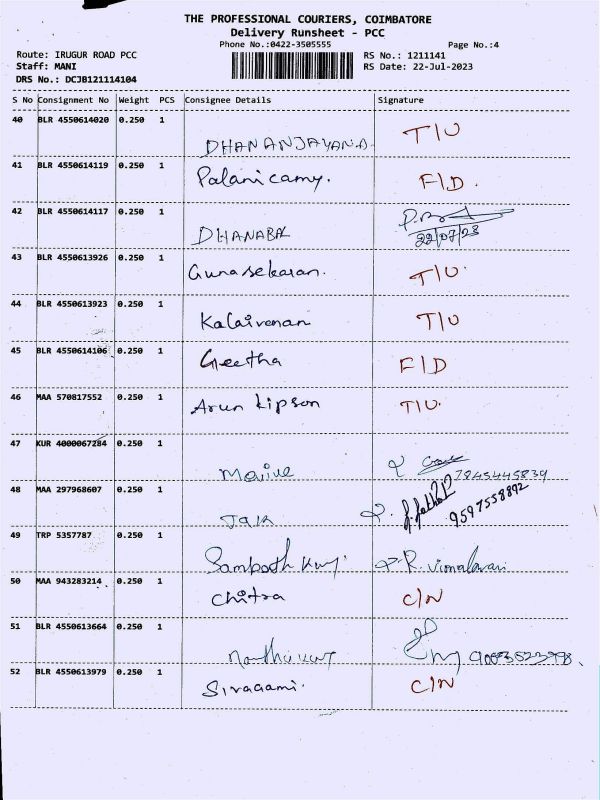 THE PROFESSIONAL COURIERS, COIMBATORE
Delivery Runsheet - PCC
Phone No.:0422-3505555 Page No.:4
Route: IRUGUR ROAD PCC RS No.: 1211141
Staff: MANI RS Date: 22-Jul-2023
DRS No.: DCJB121114104
S No Consignment No Weight PCS Consignee Details Signature
40 BLR 4550614020 0.250 1 DHANANJAYAN.A. T/U
41 BLR 4550614119 0.250 1 Palanicamy. F/D.
42 BLR 4550614117 0.250 1 DHANABAL
22/07/23
43 BLR 4550613926 0.250 1 Gunasekaran. T/U.
44 BLR 4550613923 0.250 1 Kalaivanan T/U
45 BLR 4550614106 0.250 1 Geetha F/D
46 MAA 570817552 0.250 1 Arun kipson T/U.
47 KUR 4000067284 0.250 1 7845445839
48 MAA 297968607 0.250 1 9597558892
49 TRP 5357787 0.250 1 Sampath
50 MAA 943283214 0.250 1 Chitra C/N
51 BLR 4550613664 0.250 1
52 BLR 4550613979 0.250 1 Sivagami. C/N